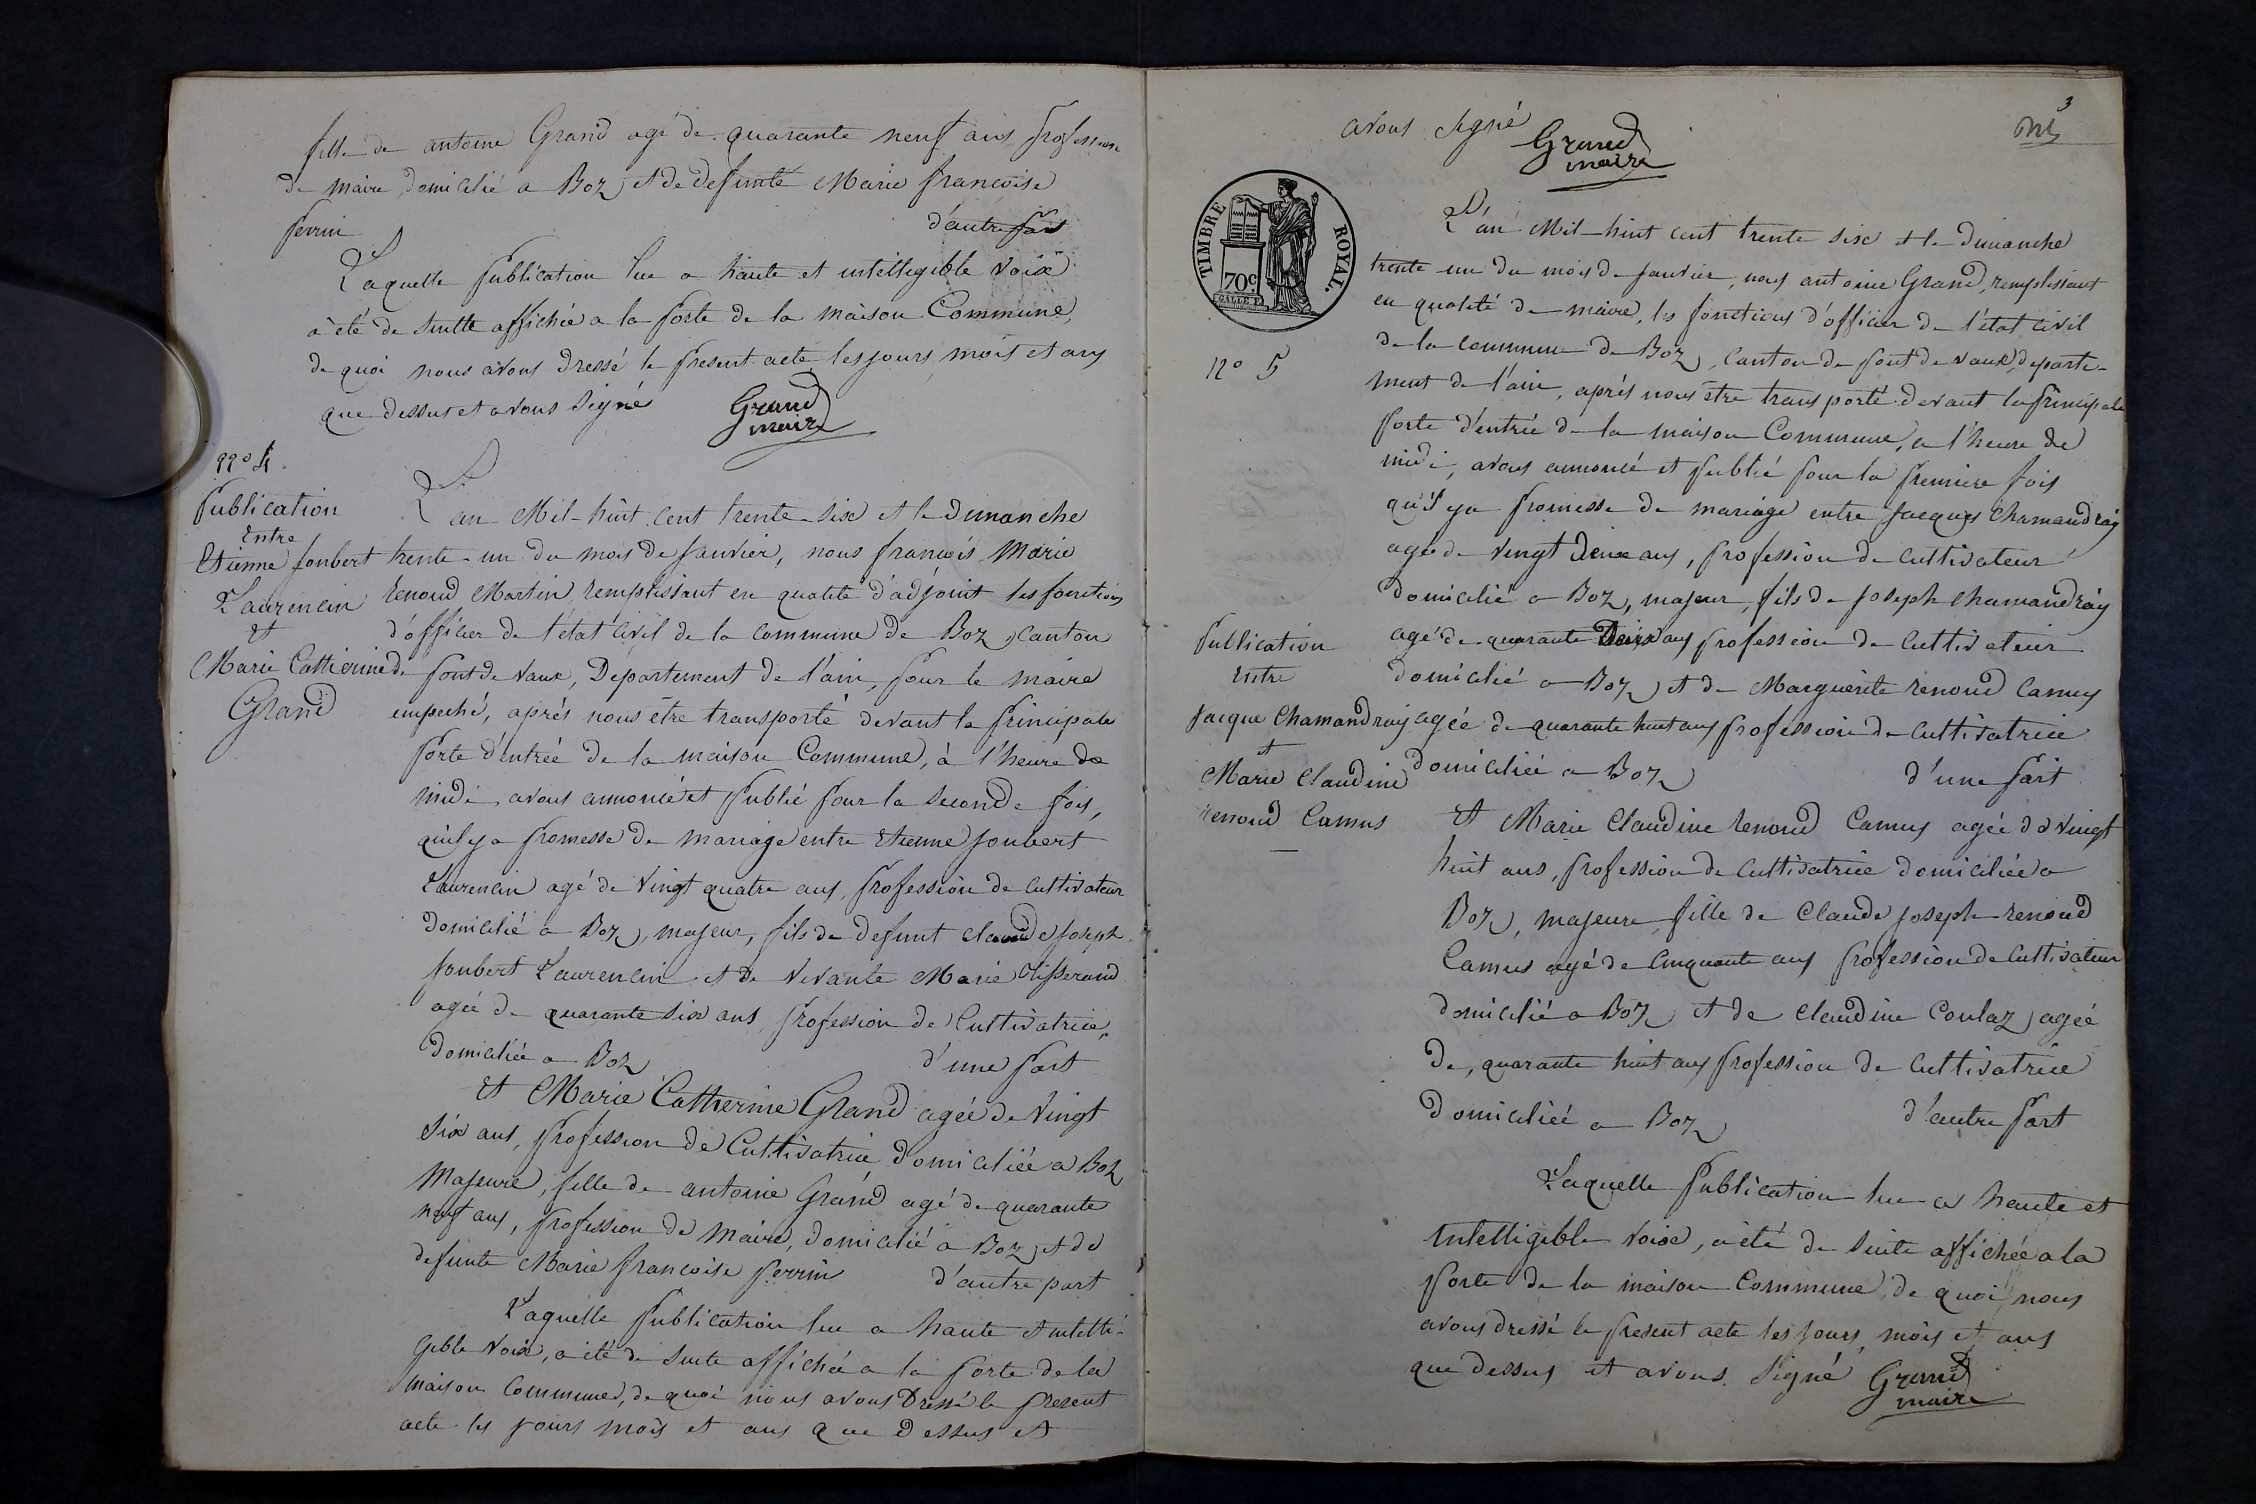 fille de antoine Grand agé de quarante neuf ans profession
de maire domicilié a Boz et de defunte Marie francoise
perrin d'autre part
Laquelle publication lue a haute et intelligible voix
a été de suitte affichée a la porte de la maison Commune,
de quoi nous avons dressé le present acte les jours mois et ans
que dessus et avons signé Grand
maire
n° 4.
publication
Entre
Etienne joubert
Laurencin
Et
Marie Catherine
Grand
L'an Mil huit cent trente six et le dimanche
trente un du mois de janvier, nous francois Marie
renoud Martin, remplissant en qualité d'adjoint les fonctions
d'officier de l'état civil de la commune de Boz, canton
de pont de vaux, Departement de l'ain, pour le maire
empeché, aprés nous être transporté devant la principale
porte d'entrée de la maison Commune, à l'heure de
midi, avons annoncé et publié pour la seconde fois,
qu'il y a promesse de mariage entre Etienne joubert
Laurencin agé de vingt quatre ans, profession de cultivateur
domicilié a Boz, majeur, fils de defunt claude joseph
joubert Laurencin et de vivante Marie Tisserand
agée de quarante six ans, profession de Cultivatrice,
domiciliée a Boz d'une part
Et Marie Catherine Grand agée de vingt
six ans, profession de Cultivatrice domiciliée a Boz
Majeure, fille de antoine Grand agé de quarante
neuf ans, profession de Maire, domicilié a Boz et de
defunte Marie francoise perrin d'autre part
Laquelle publication lue a haute et intelli-
gible voix, a été de suite affichée a la porte de la
maison Commune, de quoi nous avons Dressé le present
acte les jours mois et ans que dessus et
3
avons signé
Grand
maire
TIMBRE ROYAL.
70c.
n° 5
publication
Entre
jacque Chamandray
et
Marie Claudine
renoud Camus
L'an Mil huit cent trente six et le Dimanche
trente un du mois de janvier, nous antoine Grand, remplissant
en qualité de maire, les fonctions d'officier de l'état civil
de la commune de Boz, canton de pont de vaux, departe-
ment de l'ain, aprés nous être transporté devant la principale
porte d'entrée de la maison Commune, a l'heure de
midi, avons annoncé et publié pour la premiere fois
qu'il y a promesse de mariage entre jacques Chamandray
agé de vingt Deux ans, profession de cultivateur
domicilié a Boz, majeur, fils de joseph chamandray
agé de quarante ans profession de cultivateur
domicilié a Boz et de Marguerite renoud Camus
agée de quarante huit ans profession de cultivatrice
domiciliée a Boz d'une part
Et Marie Claudine renoud Camus agée de vingt
huit ans, profession de cultivatrice domiciliée a
Boz, majeure, fille de Claude joseph renoud
Camus agé de cinquante ans profession de cultivateur
domicilié a Boz et de Claudine Coulaz, agée
de, quarante huit ans profession de cultivatrice
domiciliée a Boz d'autre part
Laquelle publication lue a haute et
intelligible voix, a été de suite affichée a la
porte de la maison Commune, de quoi nous
avons dressé le present acte les jours, mois et ans
que dessus et avons signé Grand
maire